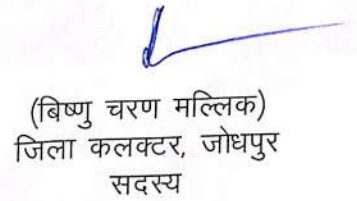 (बिष्णु चरण मल्लिक)
जिला कलक्टर, जोधपुर
सदस्य